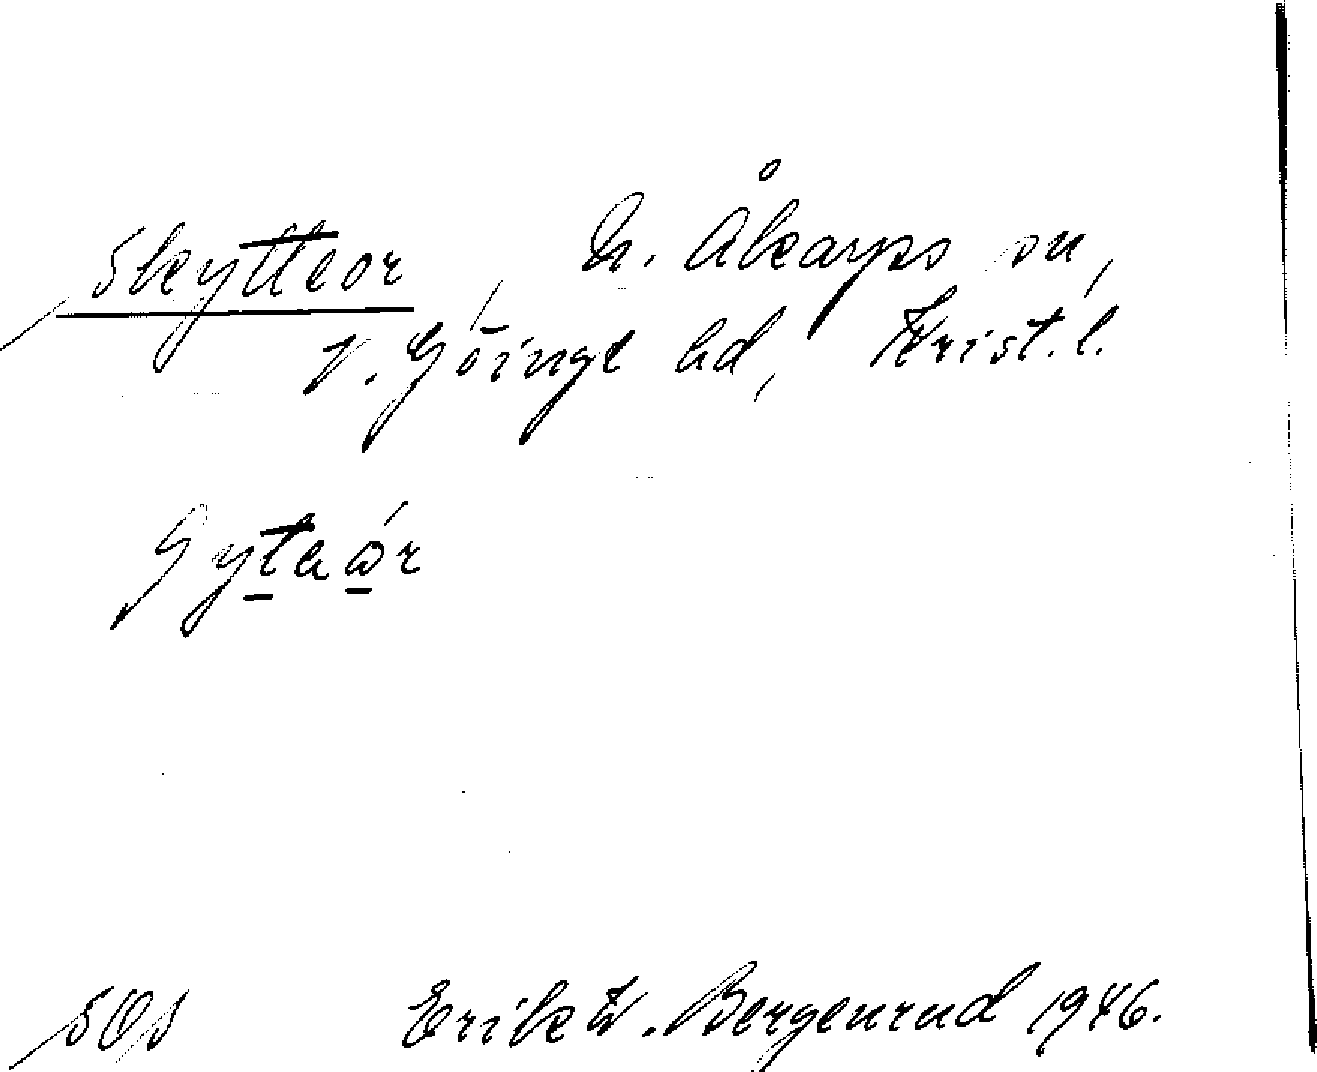 Skytteor, N. Åkarps sn,
V. Göinge hd, Krist. l.
Erik W. Bergenrud 1946.